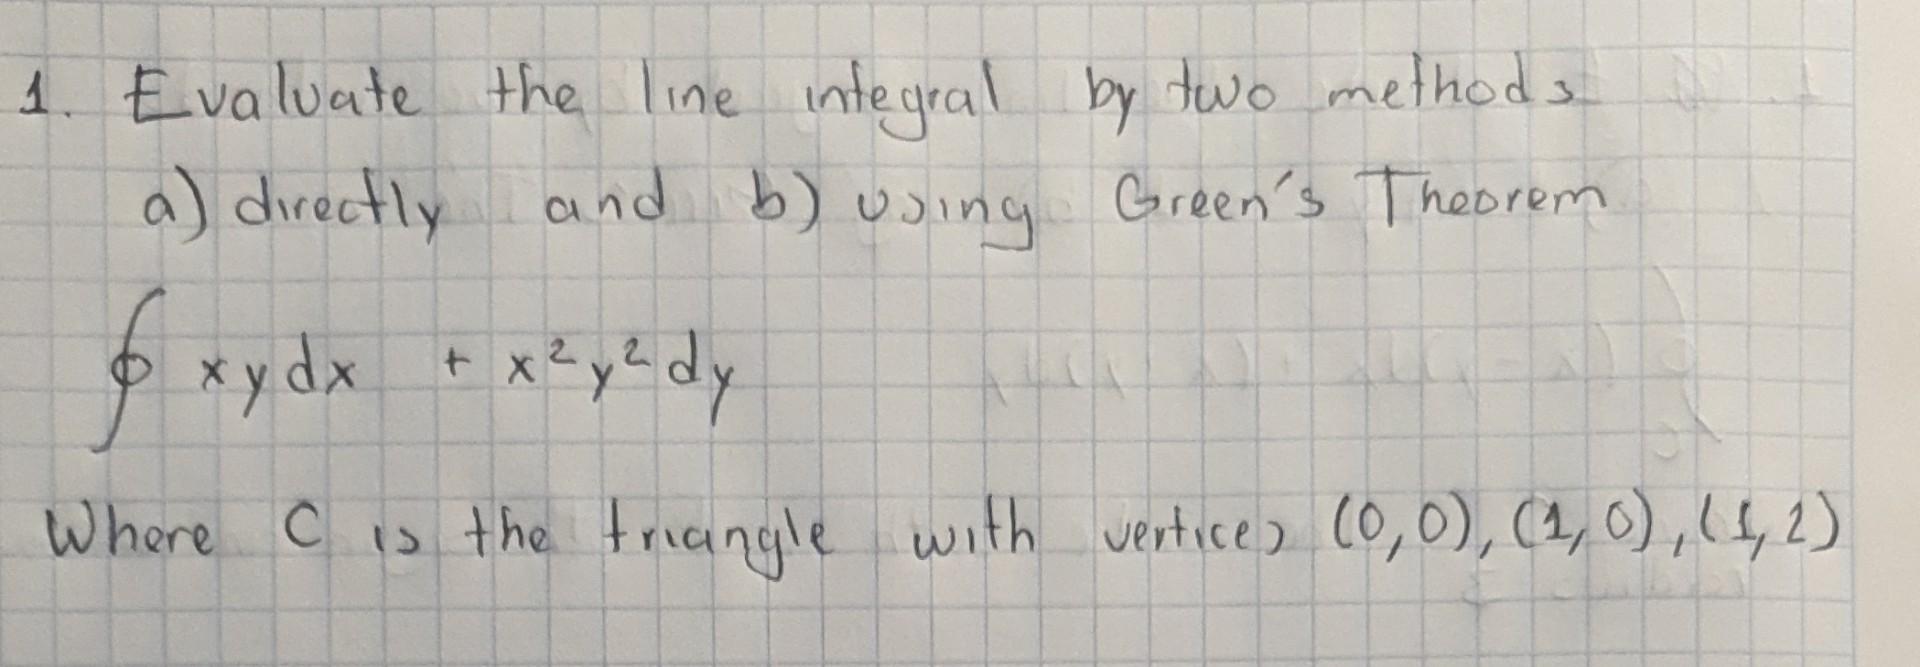 1. Evaluate the line integral by two methods
a) directly and b) using Green's Theorem
∮ xydx + x²y²dy
Where C is the triangle with vertices (0,0), (1,0), (1,2)